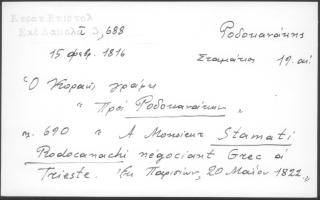 Κοραη Επιστολ
Εκδ Δαμαλα 3,688
Ροδοκανάκης
15 φεβρ. 1816
Σταμάτιος 19. αἰ.
"Ὁ Κοραῆς γράφει
"Πρὸς Ῥοδοκανάκην„
σ. 690 " A Monsieur Stamati
Rodocanachi négociant Grec à
Trieste. Ἐκ Παρισίων, 20 Μαΐου 1822„